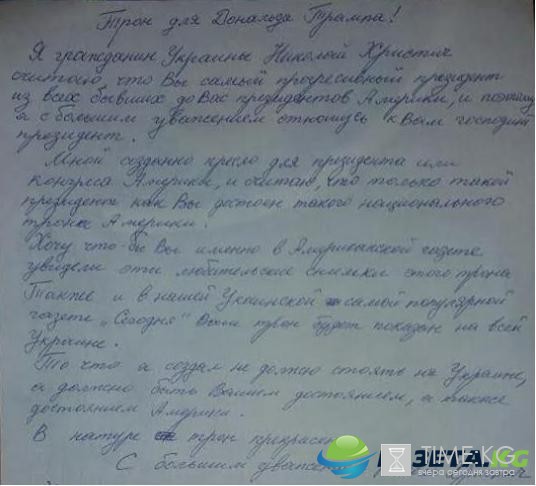 Трон для Дональда Трампа!
Я гражданин Украины Николай Христич
считаю, что Вы самый прогресивный президент
из всех бывших до Вас президентов Америки, и поэтому
я с большим уважением отношусь к Вам господин
президент.
Мной созданно кресло для президента или
конгреса Америки, и считаю, что только такой
президент как Вы достоен такого национального
трона Америки.
Хочу что-бы Вы именно в Американской газете
увидели эти любительские снимки этого трона
Также и в нашей Украинской самой популярной
газете "Сегодня" трон будет показан на всей
Украине.
То что я создал не должно стоять на Украине,
а должно быть Вашим достоянием, а также
достоянием Америки.
В натуре трон прекрасен
С большим уважением
ГАЗЕТА.KG
TIME.KG
вчера сегодня завтра